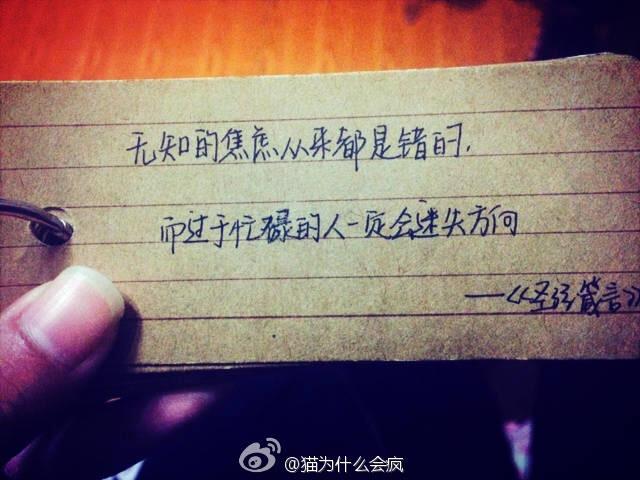 无知的焦虑从来都是错的,
而过于忙碌的人一定会迷失方向
——《圣经箴言》
@猫为什么会疯